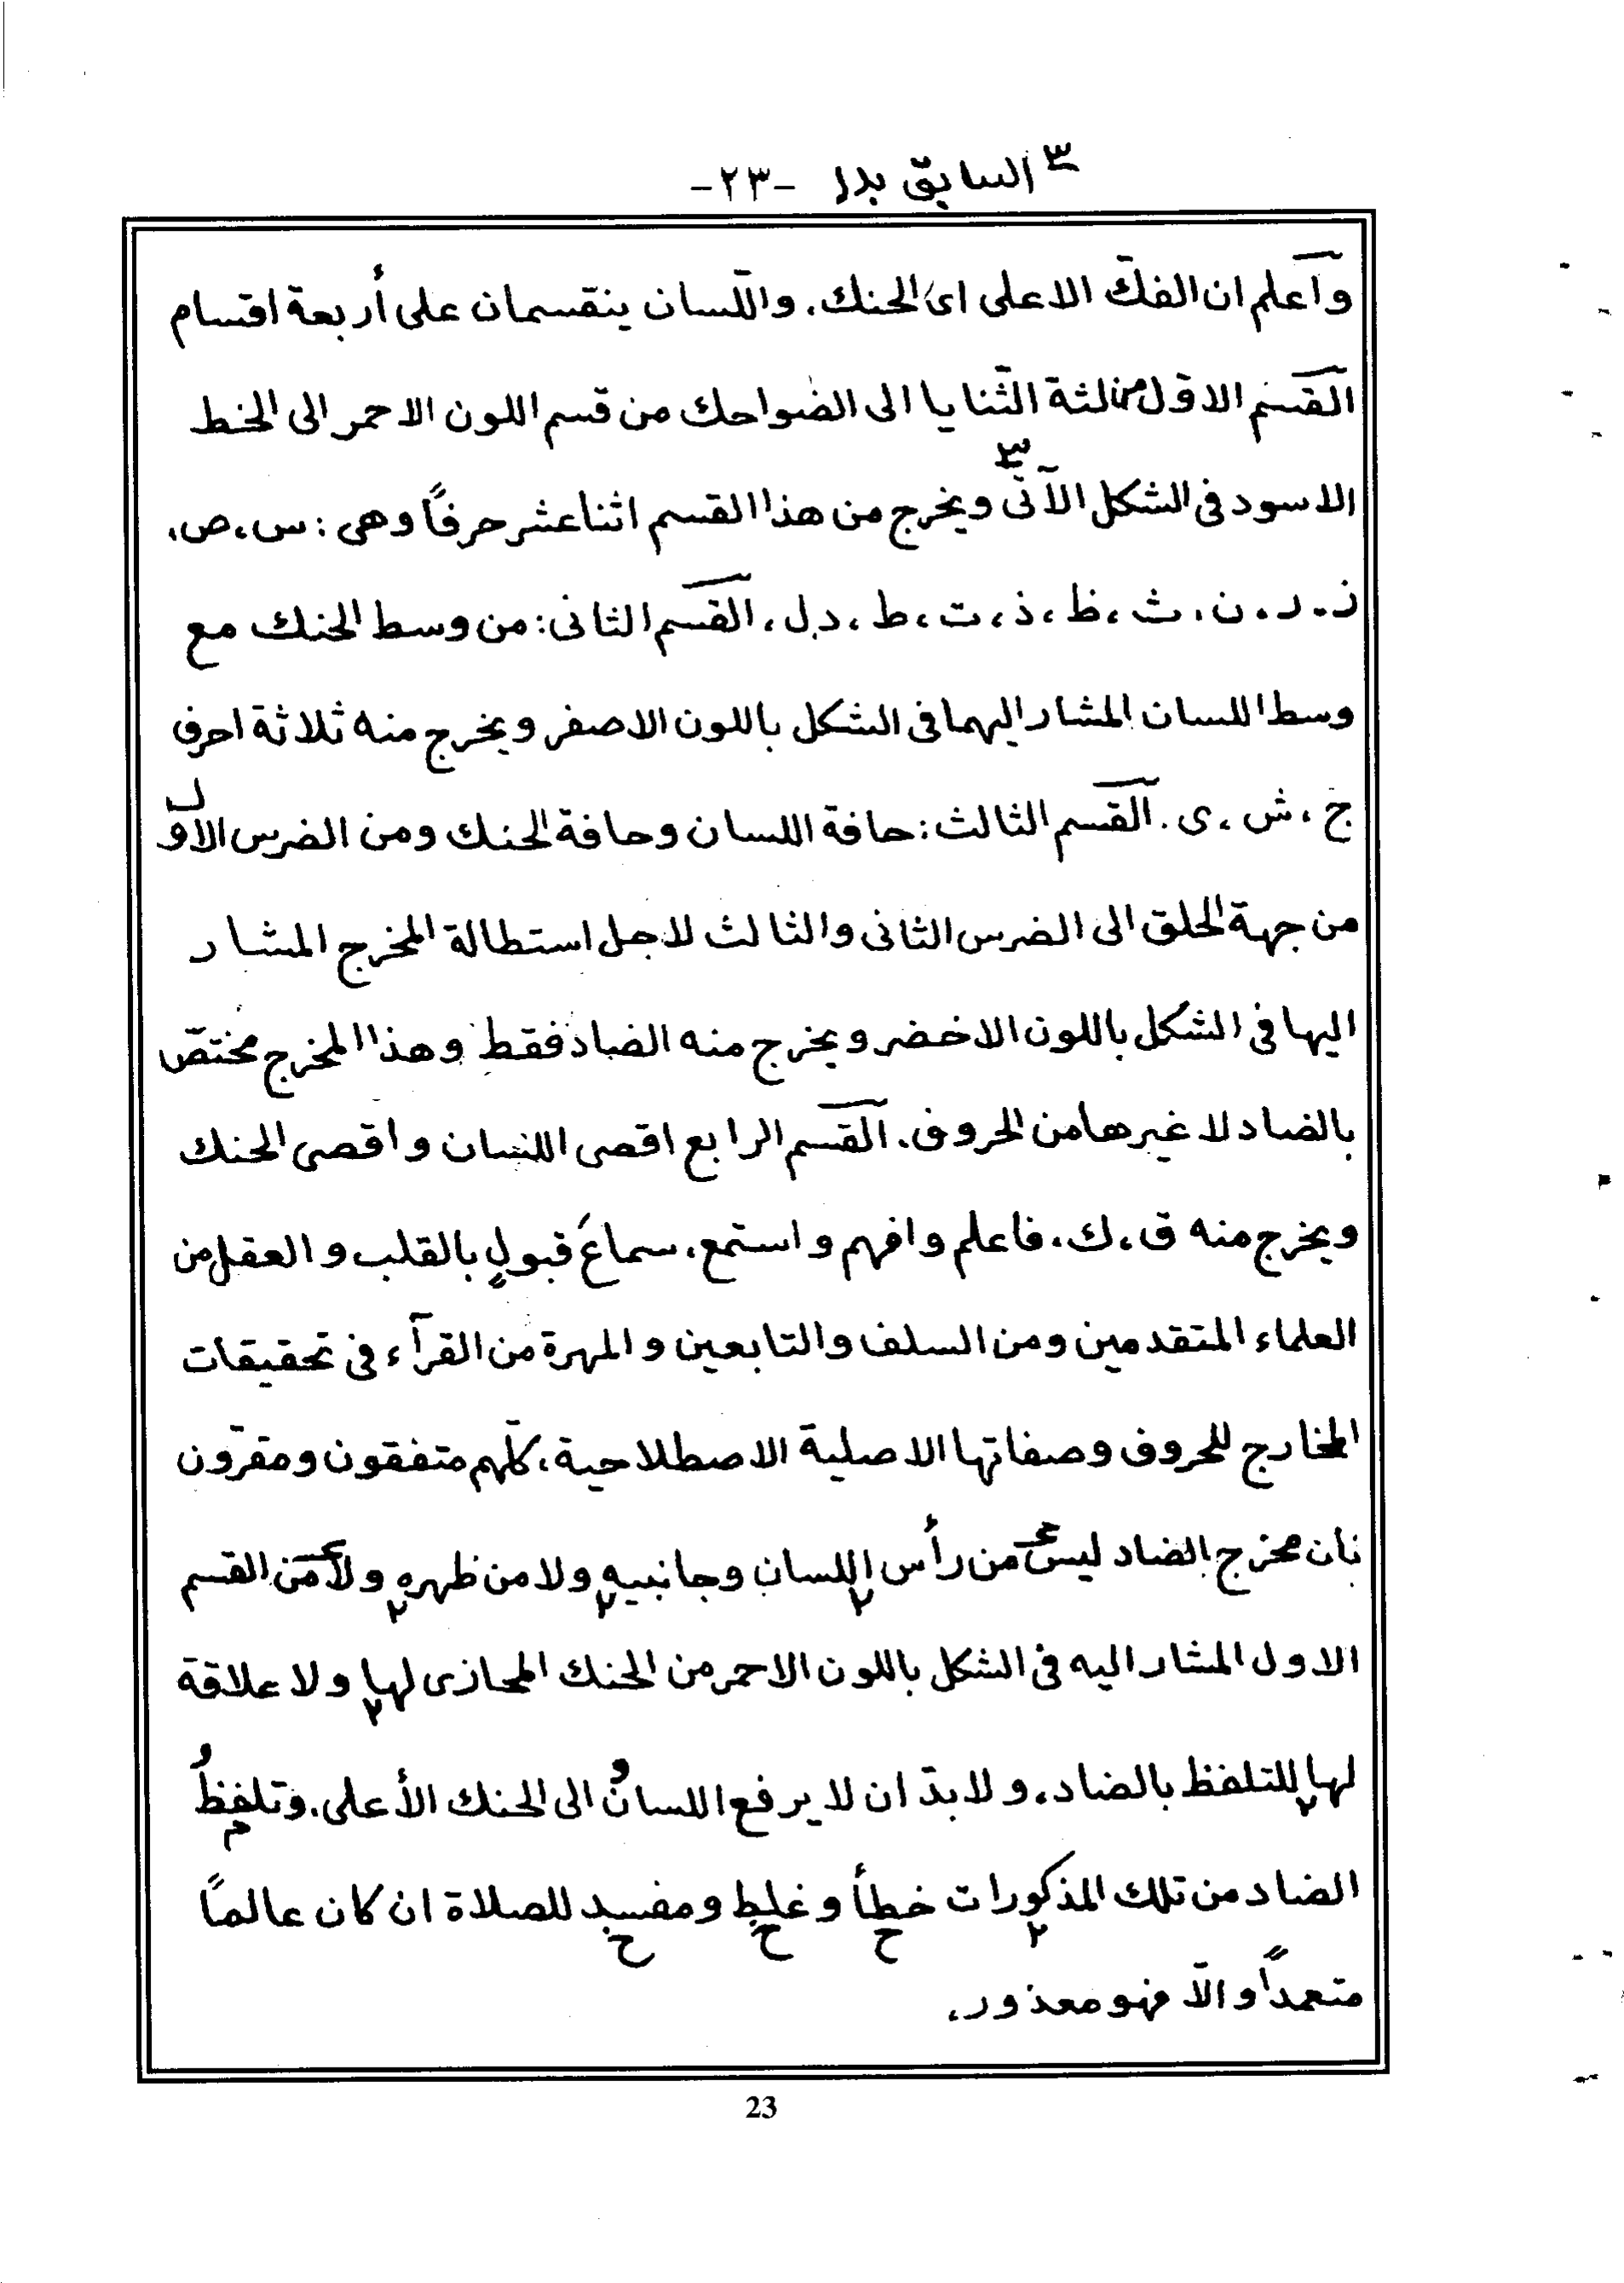 ٣ السابق بدل -٢٣-
وآعلم ان الفكّ الاعلى اىْ الحنك. واللّسان ينقسمان على أربعة اقسام
القسم الاوّل من لثة الثّنايا الى الضواحك من قسم اللون الاحمر الى الخط
الاسود فى الشكل الآتى٣ ويخرج من هذا القسم اثنا عشر حرفاً وهى: س، ص،
ز. ر. ن. ث، ظ، ذ، ت، ط، د. ل، القسم الثانى: من وسط الحنك مع
وسط اللسان المشار اليهما فى الشكل باللون الاصفر ويخرج منه ثلاثة احرف
ج، ش، ى. القسم الثالث: حافة اللسان وحافة الحنك ومن الضرس الاول
من جهة الحلق الى الضرس الثانى والثالث لاجل استطالة المخرج المشار
اليها فى الشكل باللون الاخضر ويخرج منه الضاد فقط وهذا المخرج مختصّ
بالضاد لا غيرها من الحروف. القسم الرابع اقصى اللسان واقصى الحنك
ويخرج منه ق، ك، فاعلم وافهم واستمع، سماعَ قبولٍ بالقلب والعقل من
العلماء المتقدمين ومن السلف والتابعين والمهرة من القرآء فى تحقيقات
المخارج للحروف وصفاتها الاصلية الاصطلاحية، كلّهم متفقون ومقرّون
بان مخرج الضاد ليس من رأس اللسان وجانبيه ولا من ظهره ولا من القسم
الاول المشار اليه فى الشكل باللون الاحمر من الحنك المحازى لها ولا علاقة
لها للتلفظ بالضاد، ولا بدّ ان لا يرفع اللسانُ الى الحنك الأعلى، وتلفظُ
الضاد من تلك المذكورات خطأ وغلط ومفسد للصلاة ان كان عالماً
متعمداً والاّ فهو معذور،
23